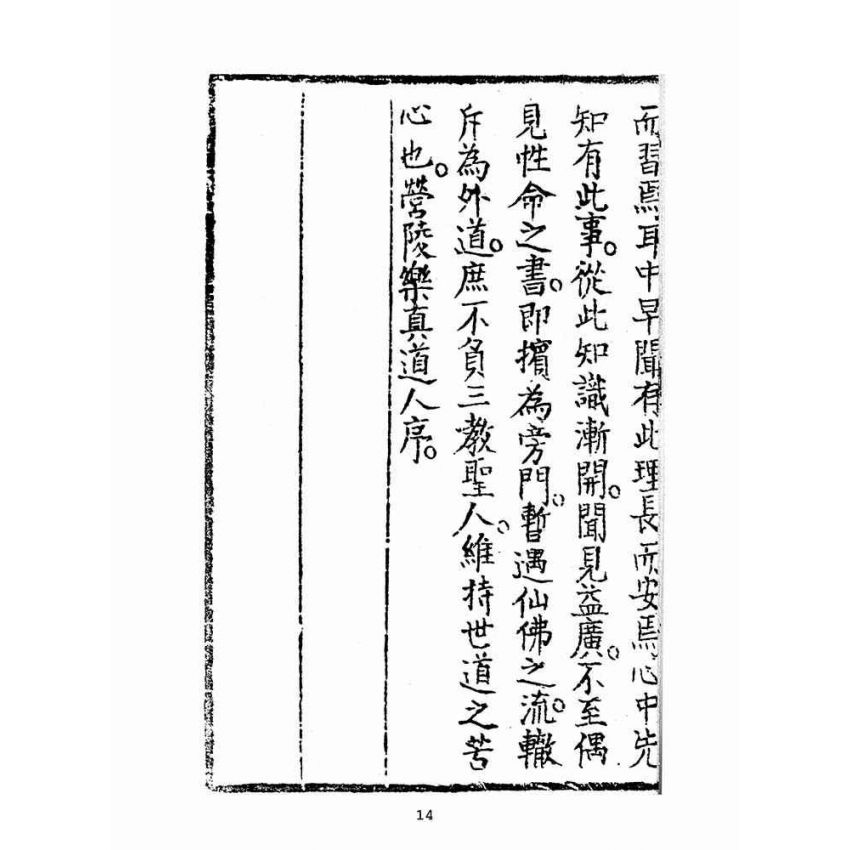 而習焉耳中早聞有此理長而安焉心中先
知有此事。從此知識漸開。聞見益廣。不至偶
見性命之書。即擯為旁門。暫遇仙佛之流。轍
斥為外道。庶不負三教聖人。維持世道之苦
心也。營陵樂真道人序。
14